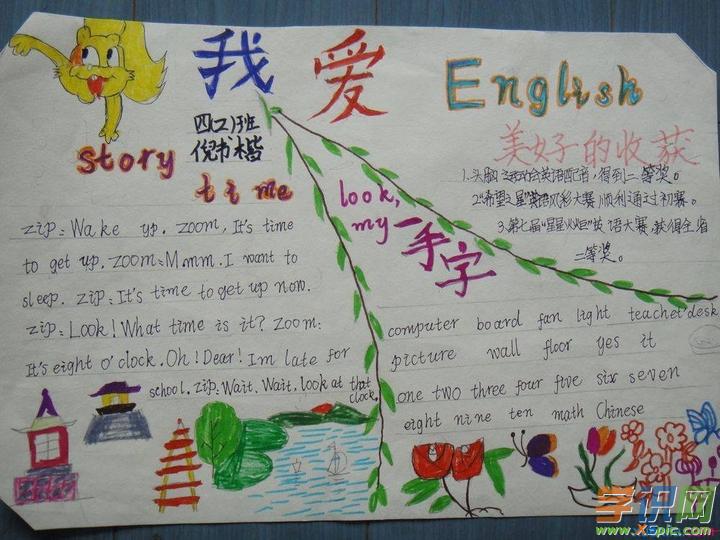 我爱English
四(2)班
倪书楷
story time
zip: Wake up. zoom, It's time
to get up. zoom: Mmm. I want to
sleep. zip: It's time to get up now.
zip: Look! What time is it? zoom:
It's eight o'clock. Oh! Dear! Im late for
school. zip: Wait. Wait. look at that
clock.
look,
my 一手字
美好的收获
1.头脑运动会英语配音,得到二等奖。
2."希望之星"英语风彩大赛,顺利通过初赛。
3.第七届"星星火炬"英语大赛,获得全省
二等奖。
computer board fan light teacher'desk
picture wall floor yes it
one two three four five six seven
eight nine ten math Chinese
学识网
www.XSpic.com